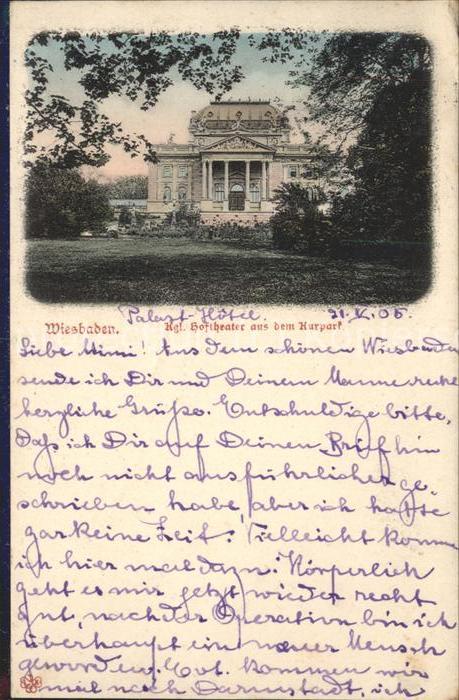 Palast-Hôtel. 21. V. 05.
Wiesbaden. Kgl. Hoftheater aus dem Kurpark
Liebe Mimi! Aus dem schönen Wiesbaden
sende ich Dir und Deinem Manne recht
herzliche Grüße. Entschuldige bitte,
daß ich Dir auf Deinen Brief hin
noch nicht ausführlicher ge-
schrieben habe, aber ich hatte
gar keine Zeit! Vielleicht komme
ich hier mal dazu. Körperlich
geht es mir jetzt wieder recht
gut, nach der Operation bin ich
überhaupt ein neuer Mensch
geworden. Evt. kommen wir
mal nach Darmstadt, ich